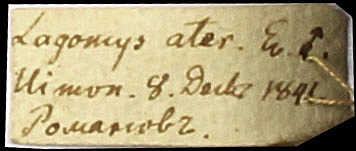 Lagomys ater. Ev. ♂.
Uimon. 8. Decbr 1841
Романовъ.